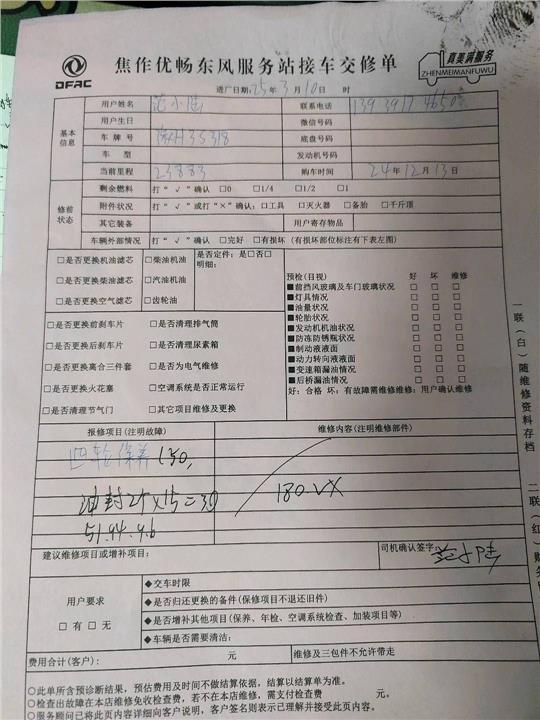 DFAC
焦作优畅东风服务站接车交修单
真美满服务
ZHENMEIMANFUWU
进厂日期:25年3月10日 时
基本信息
用户姓名 范小陆 联系电话
用户生日 微信号码
车牌号 底盘号码
车型 发动机号码
当前里程 23883 购车时间 24年12月13日
修前状态
剩余燃料 打“√”确认 □0 □1/4 □1/2 □1
附件状况 打“√”或打“×”确认:□工具 □灭火器 □备胎 □千斤顶
其它装备 用户寄存物品
车辆外部情况 打“√”确认 □完好 □有损坏(有损坏部位标注有下表左图)
□是否更换机油滤芯 □柴油机油 是否定件:是□否□
明细:
□是否更换柴油滤芯 □汽油机油
□是否更换空气滤芯 □齿轮油
□是否更换前刹车片 □是否清理排气筒
□是否更换后刹车片 □是否清理尿素箱
□是否更换离合三件套 □是否为电气维修
□是否更换火花塞 □空调系统是否正常运行
□是否清理节气门 □其它项目维修及更换
预检(目视) 好 坏 维修
■前挡风玻璃及车门玻璃状况 □ □ □
■灯具情况 □ □ □
■油量状况 □ □ □
■轮胎状况 □ □ □
■发动机机油状况 □ □ □
■防冻防锈瓶状况 □ □ □
■制动液液面 □ □ □
■动力转向液液面 □ □ □
■变速箱漏油情况 □ □ □
■后桥漏油情况 □ □ □
好:合格 坏:有故障需维修维修:用户确认维修
报修项目(注明故障) 维修内容(注明维修部件)
四轮保养 150,
油封2个×15=30
51.94.96
180.VX
建议维修项目或增补项目:
司机确认签字:
用户要求
□有 □无
◆交车时限
◆是否归还更换的备件(保修项目不退还旧件)
◆是否增补其他项目(保养、年检、空调系统检查、加装项目等)
◆车辆是否需要清洁:
费用合计(客户): 元 维修及三包件不允许带走
○此单所含预诊断结果,预估费用及时间不做结算依据,结算以结算单为准。
○检查出故障在本店维修免收检查费,若不在本店维修,需支付检查费 元。
○服务顾问已将此页内容详细向客户说明,客户签名则表示已理解并接受此页内容。
一联(白)随维修资料存档
二联(红)